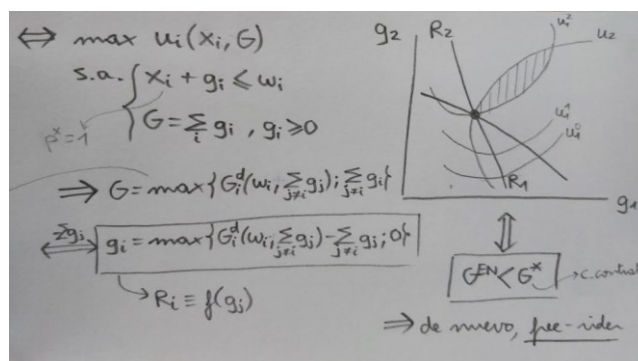 ⟺ max uᵢ(xᵢ, G)
s.a. { xᵢ + gᵢ ≤ wᵢ
pˣ = 1
G = Σᵢ gᵢ , gᵢ ≥ 0
⟹ G = max{Gᵢᵈ(wᵢ, Σⱼ≠ᵢ gⱼ); Σⱼ≠ᵢ gⱼ}
-Σgⱼ ⟺ gᵢ = max{Gᵢᵈ(wᵢ, Σⱼ≠ᵢ gⱼ) - Σⱼ≠ᵢ gⱼ; 0}
↳ Rᵢ ≡ f(gⱼ)
g₂ R₂ u₁² u₂
u₁¹
u₁⁰
R₁ g₁
⇕
Gᴱᴺ < G* → c. contrat
⟹ de nuevo, free-rider